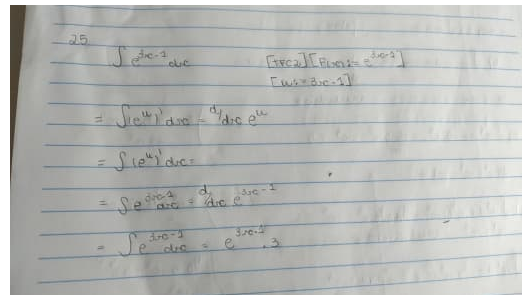 25
∫ e^{3x-1} dx [TFC2] [F(x) = e^{3x-1}]
[u = 3x-1]
= ∫(e^u)' dx = d/dx e^u
= ∫(e^u)' dx =
= ∫e^{3x-1} dx = d/dx e^{3x-1}
= ∫e^{3x-1} dx = e^{3x-1} . 3